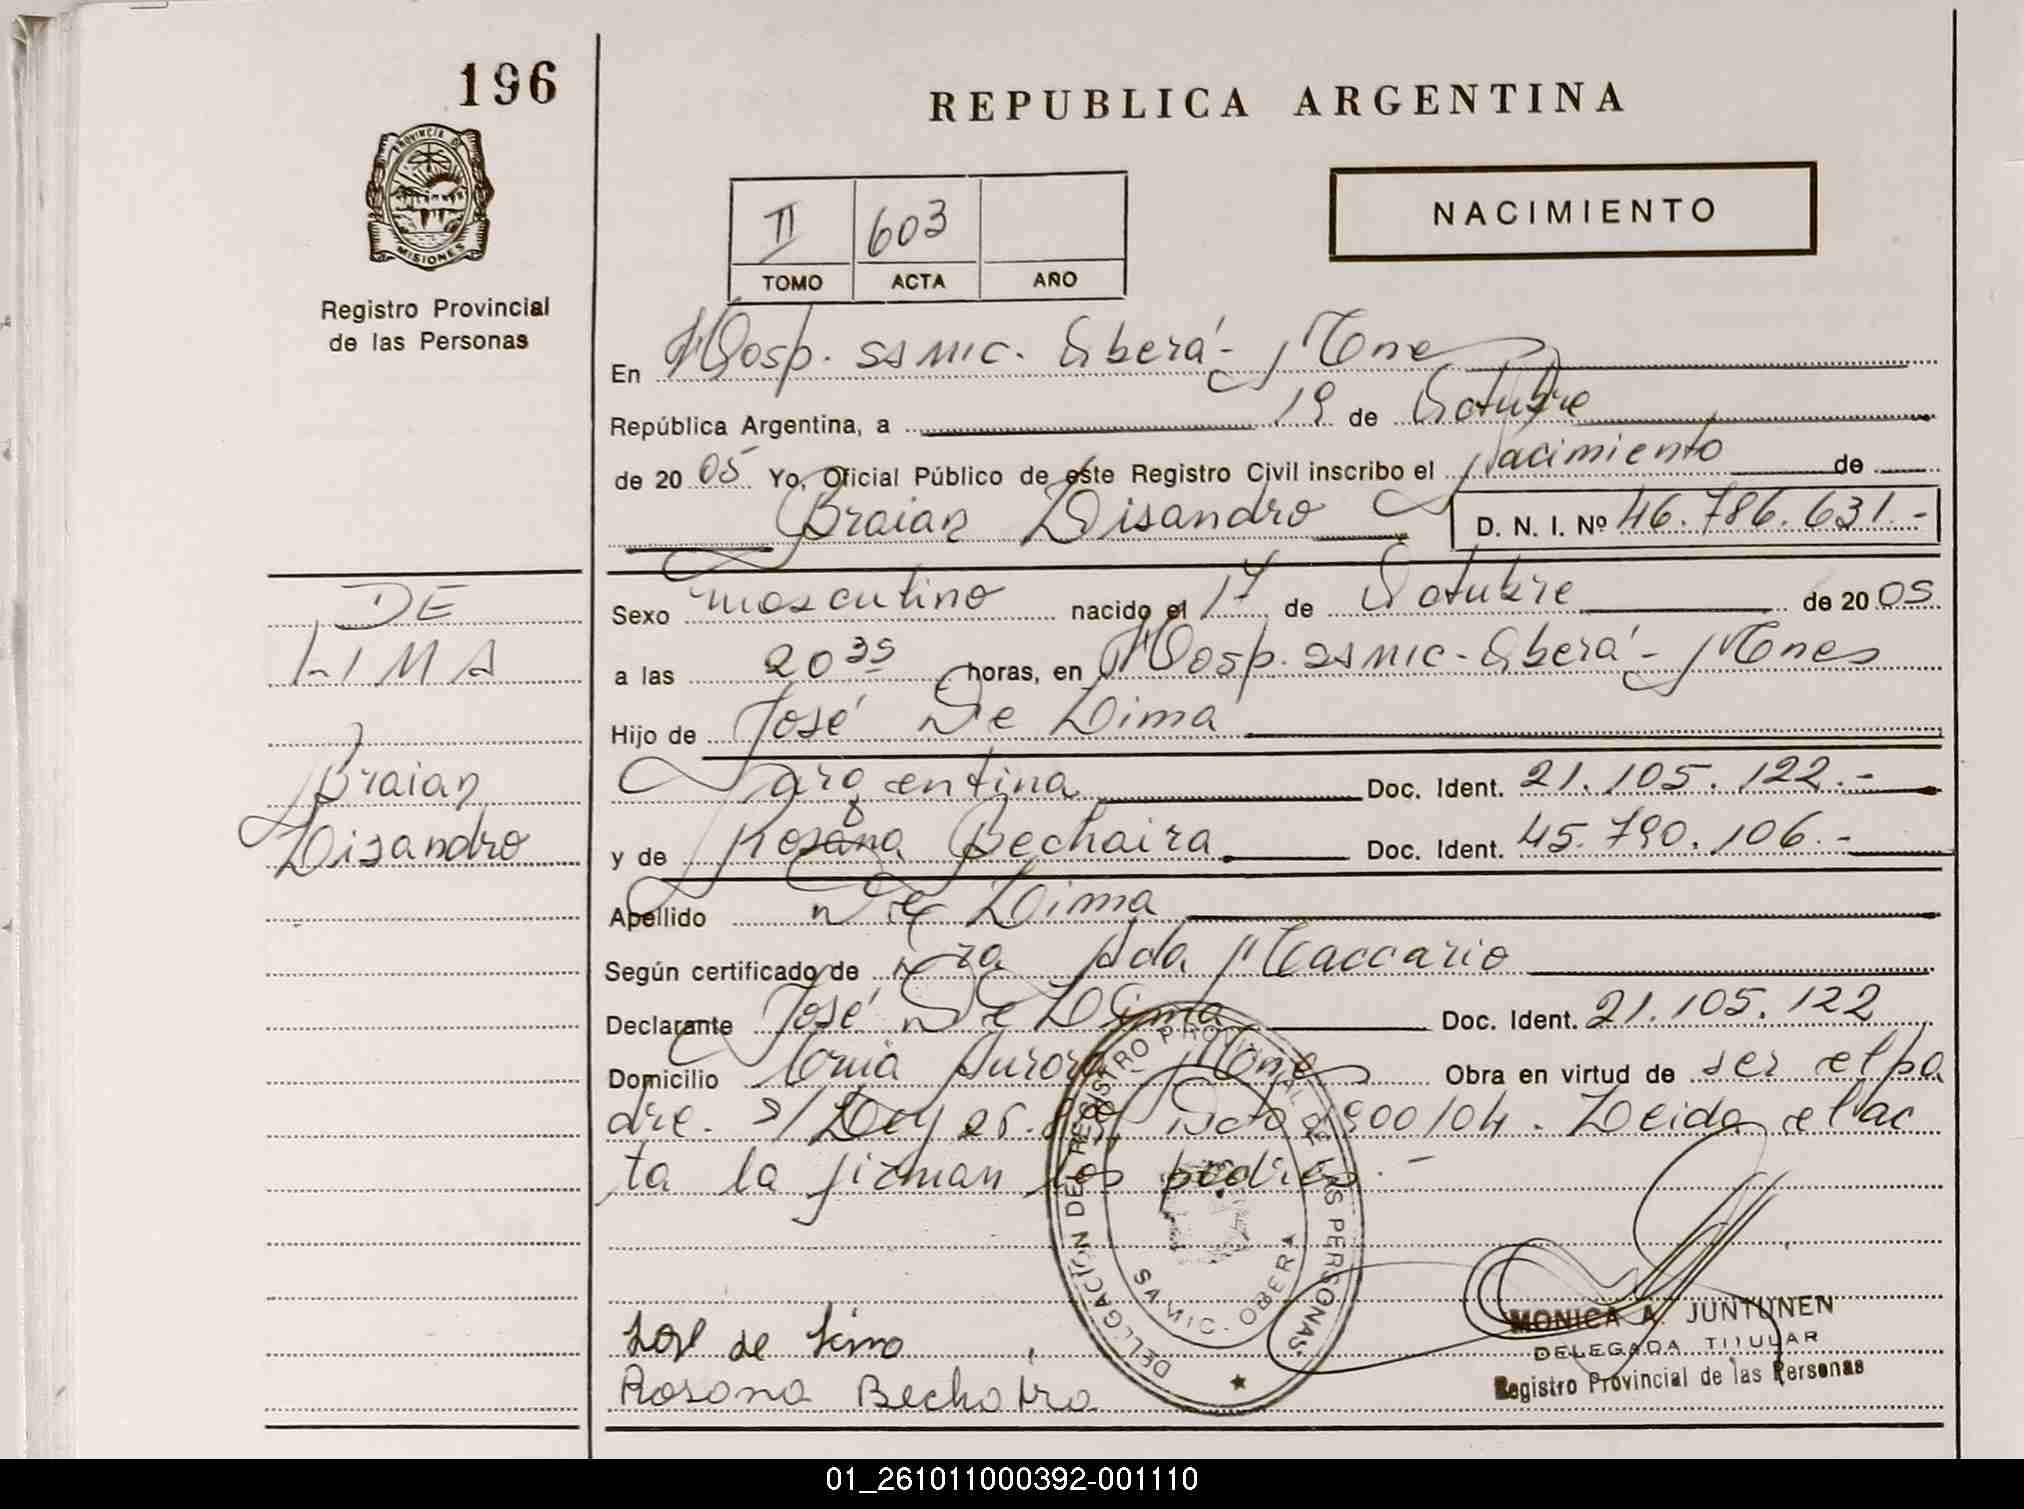 196
REPUBLICA ARGENTINA
PROVINCIA DE
MISIONES
Registro Provincial
de las Personas
NACIMIENTO
II 603
TOMO ACTA AÑO
En Hosp. SAMIC. Oberá - Mnes
República Argentina, a 19 de Octubre
de 20 05 Yo, Oficial Público de este Registro Civil inscribo el Nacimiento de
Braian Lisandro D. N. I. Nº 46.786.631.-
DE
LIMA
Braian
Lisandro
Sexo masculino nacido el 17 de Octubre de 20 05
a las 20 35 horas, en Hosp. SAMIC - Oberá - Mnes
Hijo de José De Lima
argentina Doc. Ident. 21.105.122.-
y de Rosana Bechaira Doc. Ident. 45.790.106.-
Apellido De Lima
Según certificado de Dra Ada Maccario
Declarante José De Lima Doc. Ident. 21.105.122
Domicilio Aurora Mnes Obra en virtud de ser el pa
dre. S/Ley Dcto 1900/04. Leida el ac
ta la firman los padres.-
DELEGACIÓN DEL REGISTRO PROVINCIAL DE LAS PERSONAS
SAMIC. OBERA
Jose de Lima
Rosana Bechaira
MONICA A. JUNTUNEN
DELEGADA TITULAR
Registro Provincial de las Personas
01_261011000392-001110